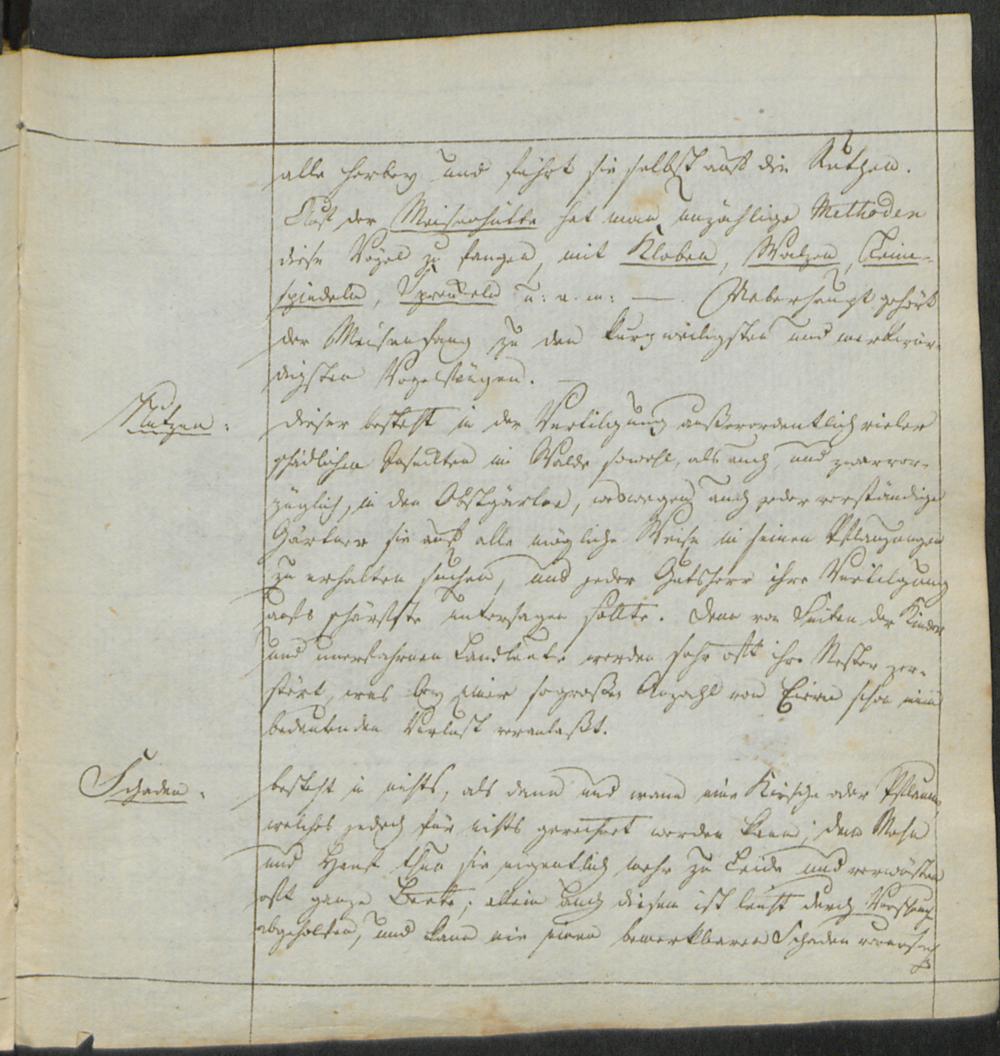 alle herbey und führt sie selbst auf die Ruthen.
Auf der Meisenhütte hat man unzählige Methoden
diese Vögel zu fangen, mit Kloben, Walzen, Leim-
spindeln, Sprenkeln u: a. m: —. Ueberhaupt gehört
der Meisenfang zu den kurzweiligsten und merkwür-
digsten Vogelfängen. —
Nutzen: dieser besteht in der Vertilgung außerordentlich vieler
schädlichen Insecten im Walde sowohl, als auch, und zwar vor-
züglich, in den Obstgärten, weswegen auch jeder verständige
Gärtner sie auf alle mögliche Weise in seinen Pflanzungen
zu erhalten suchen, und jeder Gutsherr ihre Vertilgung
aufs schärfste untersagen sollte. Denn von Seiten der Kinder
und unerfahrnen Landleute werden sehr oft ihre Nester zer-
stört, was bey einer so großen Anzahl von Eiern schon einen
bedeutenden Verlust veranlaßt.
Schaden. besteht in nichts, als dann und wann eine Kirsche oder Pflaume,
welches jedoch für nichts gerechnet werden kann; dem Mohn
und Hanf thun sie eigentlich mehr zu Leide und verwüsten
oft ganze Beete; allein auch diesem ist leicht durch
abgeholfen, und kann nie einen bemerkbaren Schaden